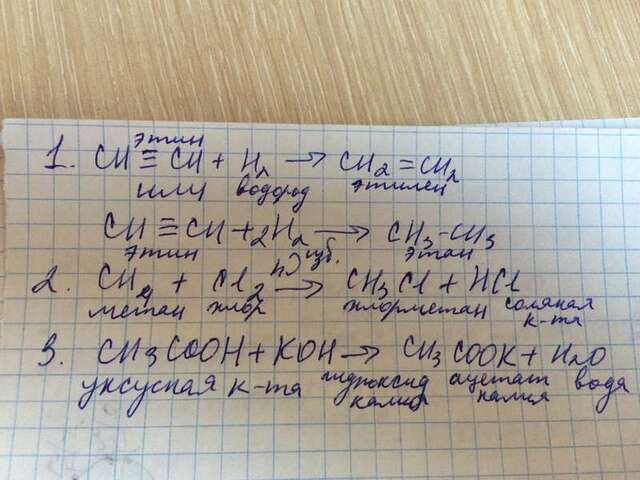 1. CH≡CH + H₂ → CH₂=CH₂
этин водород этилен
или
CH≡CH + 2H₂ → CH₃-CH₃
этин этан
2. CH₄ + Cl₂ → CH₃Cl + HCl
метан хлор хлорметан соляная к-та
3. CH₃COOH + KOH → CH₃COOK + H₂O
уксусная к-та гидроксид калия ацетат калия вода